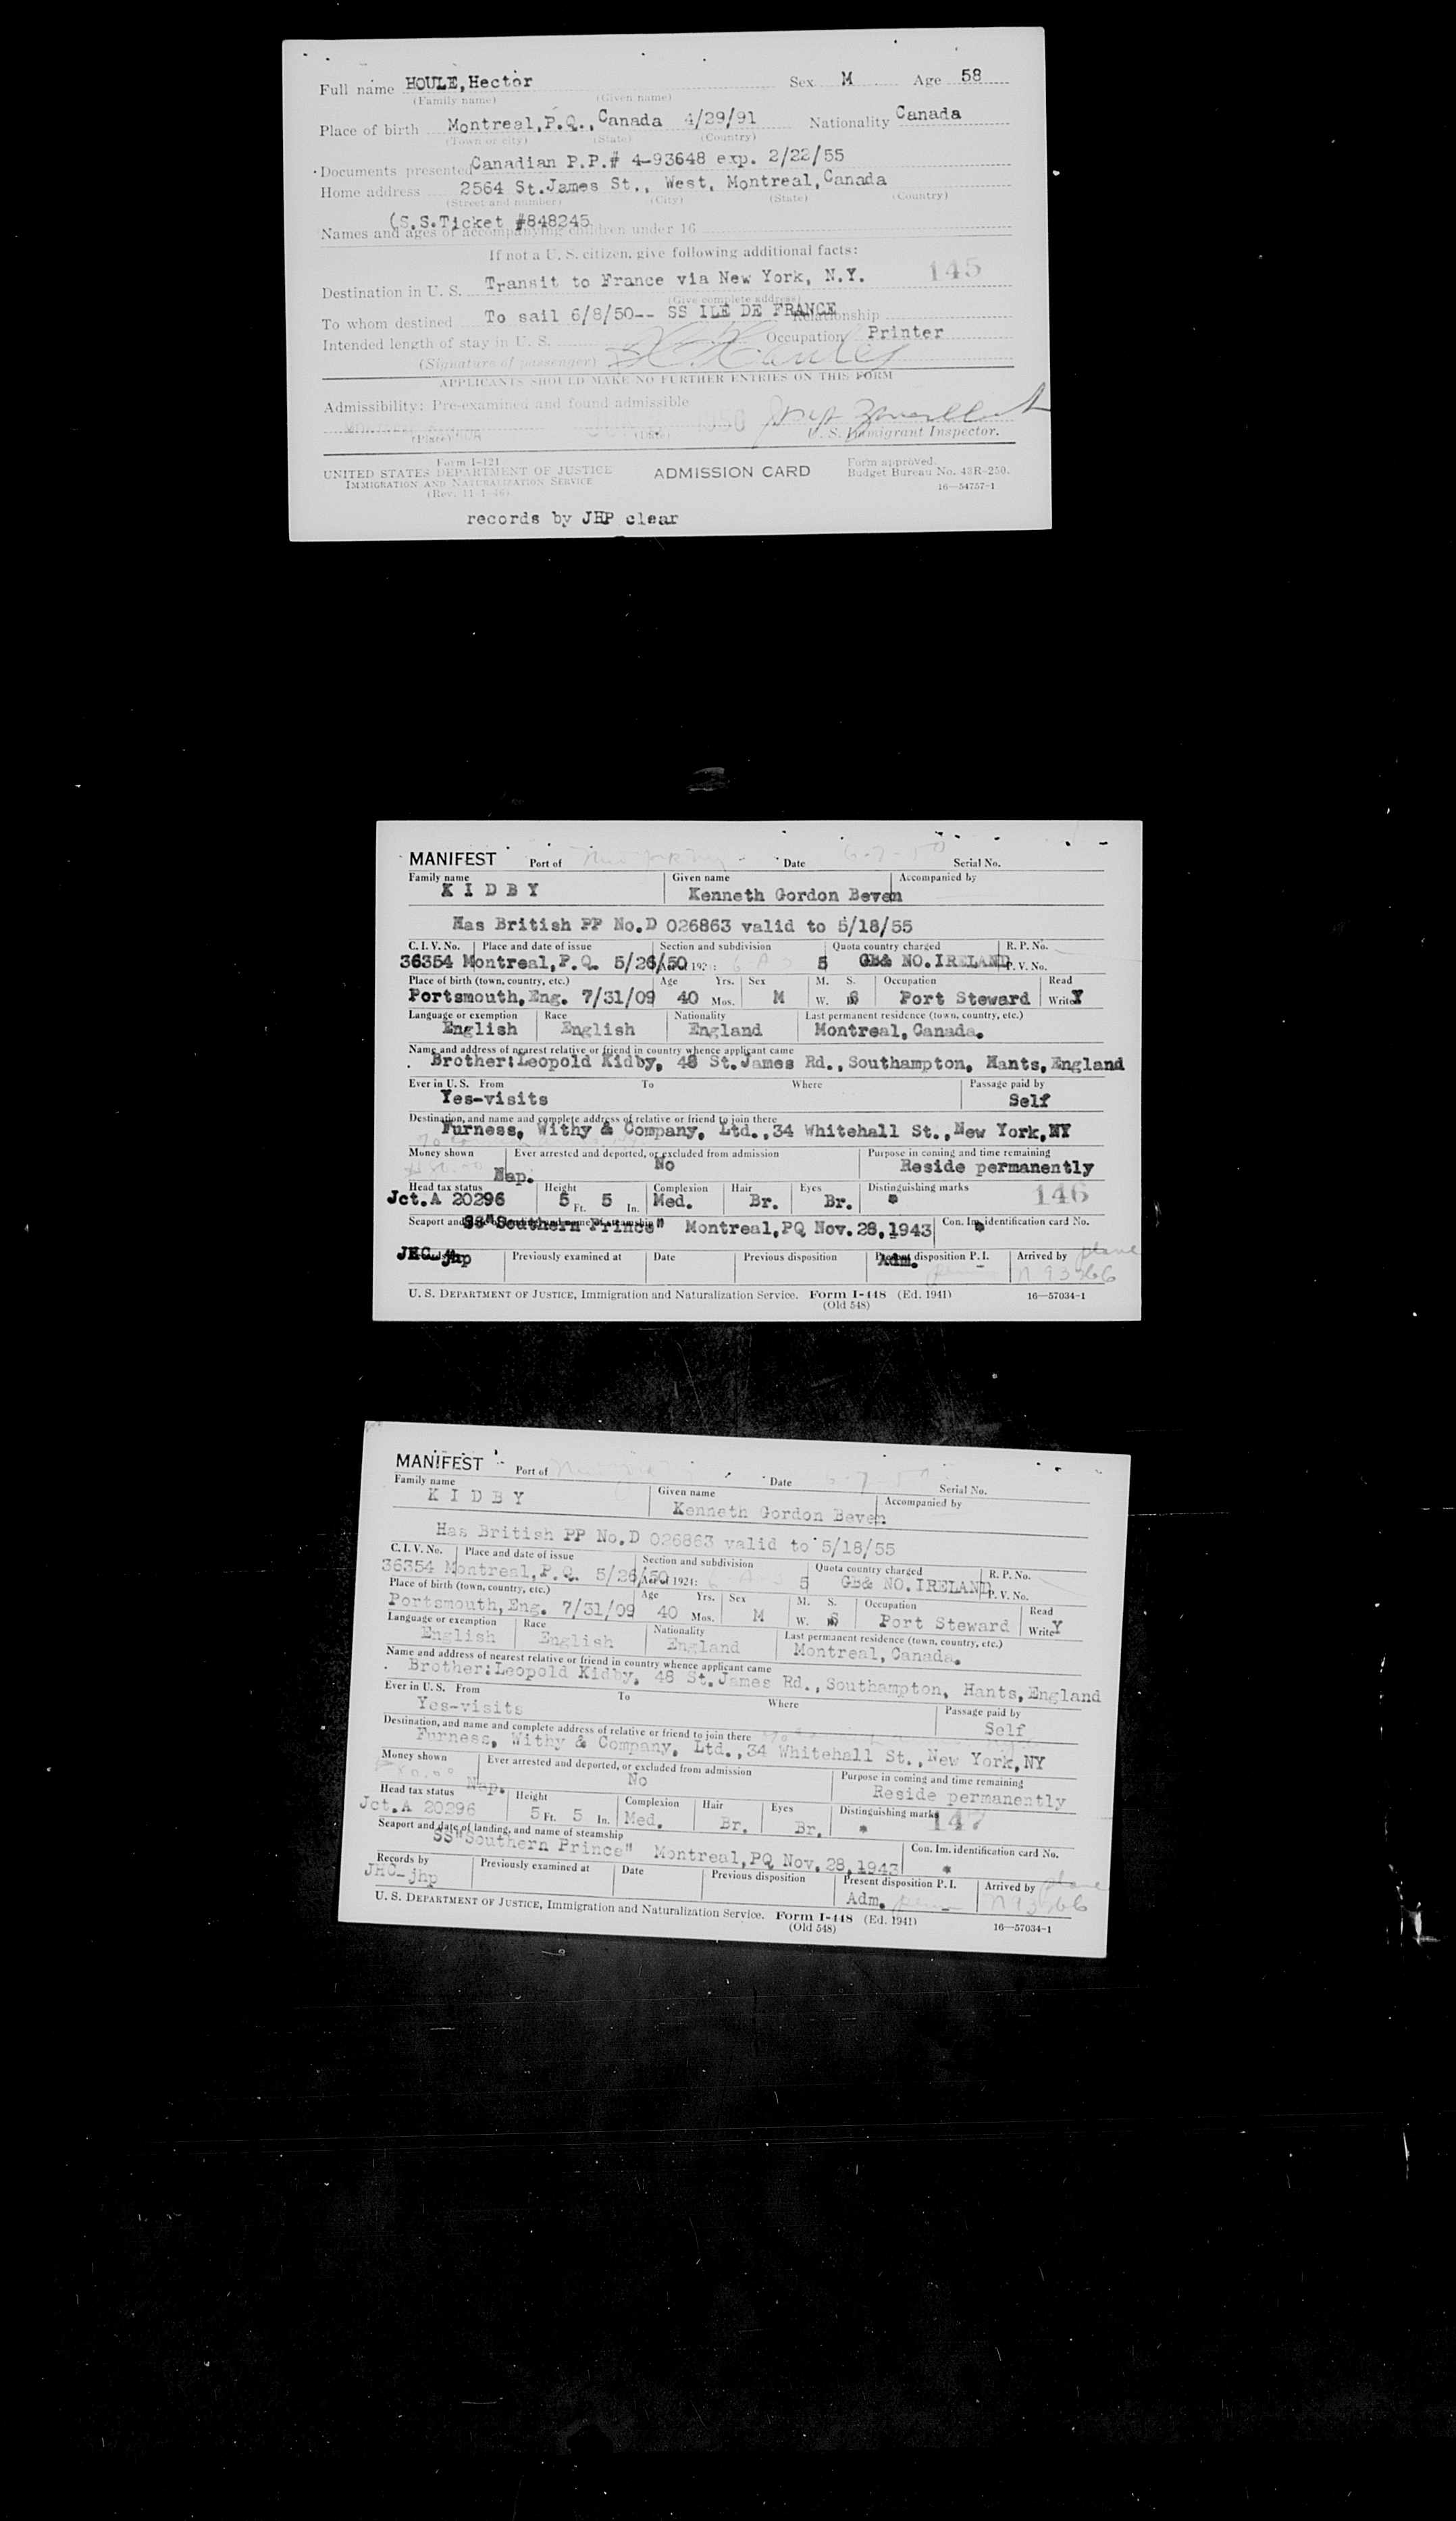 Full name HOULE, Hector Sex M Age 58
(Family name) (Given name)
Place of birth Montreal, P.Q., Canada 4/29/91 Nationality Canada
(Town or city) (State) (Country)
Documents presented Canadian P.P.# 4-93648 exp. 2/22/55
Home address 2564 St.James St., West, Montreal, Canada
(Street and number) (City) (State) (Country)
(S.S.Ticket #848245
Names and ages of accompanying children under 16
If not a U. S. citizen, give following additional facts:
Destination in U. S. Transit to France via New York, N.Y. 145
(Give complete address)
To whom destined To sail 6/8/50-- SS ILE DE FRANCE Relationship
Intended length of stay in U. S. Occupation Printer
(Signature of passenger)
APPLICANTS SHOULD MAKE NO FURTHER ENTRIES ON THIS FORM
Admissibility: Pre-examined and found admissible
1950
(Place) (Date) U. S. Immigrant Inspector.
Form I-121
UNITED STATES DEPARTMENT OF JUSTICE ADMISSION CARD Form approved.
IMMIGRATION AND NATURALIZATION SERVICE Budget Bureau No. 43R-250.
(Rev. 11-1-46) 16—54757-1
records by JHP clear
MANIFEST Port of New York Date 6-7-50 Serial No.
Family name Given name Accompanied by
K I D B Y Kenneth Gordon Beven
Has British PP No.D 026863 valid to 5/18/55
C. I. V. No. Place and date of issue Section and subdivision Quota country charged R. P. No.
36354 Montreal, P.Q. 5/26/50 5 GB& NO.IRELAND P. V. No.
Place of birth (town, country, etc.) Age Yrs. Sex M. S. Occupation Read
Portsmouth, Eng. 7/31/09 40 Mos. M W. S Port Steward Write Y
Language or exemption Race Nationality Last permanent residence (town, country, etc.)
English English England Montreal, Canada.
Name and address of nearest relative or friend in country whence applicant came
Brother: Leopold Kidby, 48 St.James Rd., Southampton, Hants, England
Ever in U. S. From To Where Passage paid by
Yes-visits Self
Destination, and name and complete address of relative or friend to join there
Furness, Withy & Company, Ltd., 34 Whitehall St., New York, NY
Money shown Ever arrested and deported, or excluded from admission Purpose in coming and time remaining
Nap. No Reside permanently
Head tax status Height Complexion Hair Eyes Distinguishing marks
Jct.A 20296 5 Ft. 5 In. Med. Br. Br. * 146
SS"Southern Prince" Montreal, PQ Nov. 28, 1943 Con. Im. identification card No.
JHC-jhp Previously examined at Date Previous disposition Present disposition P. I. Arrived by plane
Adm.
U. S. DEPARTMENT OF JUSTICE, Immigration and Naturalization Service. Form I-448 (Ed. 1941) 16—57034-1
(Old 548)
MANIFEST Port of New York Date 6-7-50 Serial No.
Family name Given name Accompanied by
K I D B Y Kenneth Gordon Beven
Has British PP No.D 026863 valid to 5/18/55
C. I. V. No. Place and date of issue Section and subdivision Quota country charged R. P. No.
36354 Montreal, P.Q. 5/26/50 Act of 1924: 5 GB& NO.IRELAND P. V. No.
Place of birth (town, country, etc.) Age Yrs. Sex M. S. Occupation Read
Portsmouth, Eng. 7/31/09 40 Mos. M W. S Port Steward Write Y
Language or exemption Race Nationality Last permanent residence (town, country, etc.)
English English England Montreal, Canada.
Name and address of nearest relative or friend in country whence applicant came
Brother: Leopold Kidby, 48 St.James Rd., Southampton, Hants, England
Ever in U. S. From To Where Passage paid by
Yes-visits Self
Destination, and name and complete address of relative or friend to join there
Furness, Withy & Company, Ltd., 34 Whitehall St., New York, NY
Money shown Ever arrested and deported, or excluded from admission Purpose in coming and time remaining
Nap. No Reside permanently
Head tax status Height Complexion Hair Eyes Distinguishing marks 147
Jct.A 20296 5 Ft. 5 In. Med. Br. Br. *
Seaport and date of landing, and name of steamship Con. Im. identification card No.
SS"Southern Prince" Montreal, PQ Nov. 28, 1943 *
Records by Previously examined at Date Previous disposition Present disposition P. I. Arrived by plane
JHC-jhp Adm.
U. S. DEPARTMENT OF JUSTICE, Immigration and Naturalization Service. Form I-448 (Ed. 1941) 16—57034-1
(Old 548)